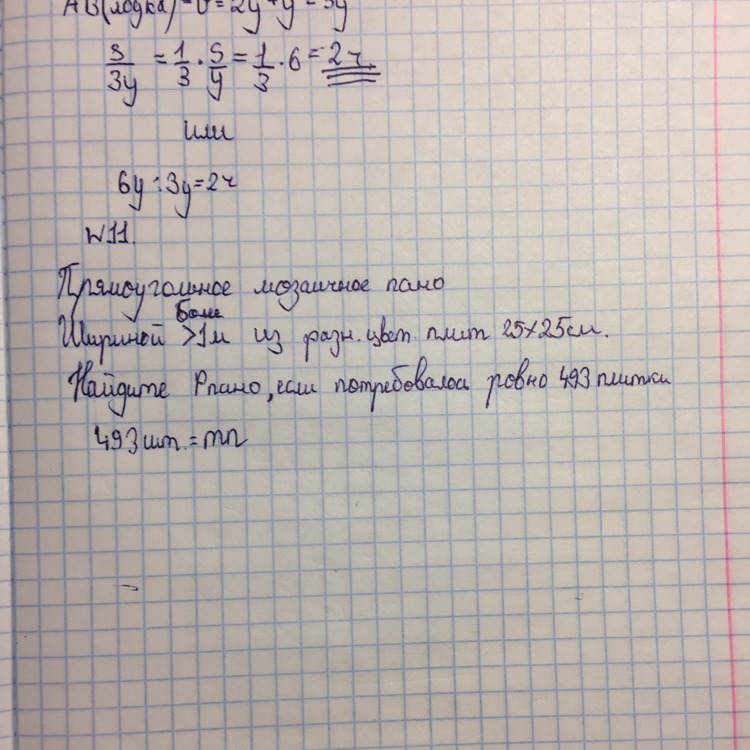 АВ(лодка) = v = 2y + y = 3y
s/3y = 1/3 · s/y = 1/3 · 6 = 2ч.
или
6y : 3y = 2ч
N11.
Прямоугольное мозаичное пано
более
Шириной >1м из разн. цвет. плит 25×25см.
Найдите Pпано, если потребовалось ровно 493 плитки
493шт. = mn